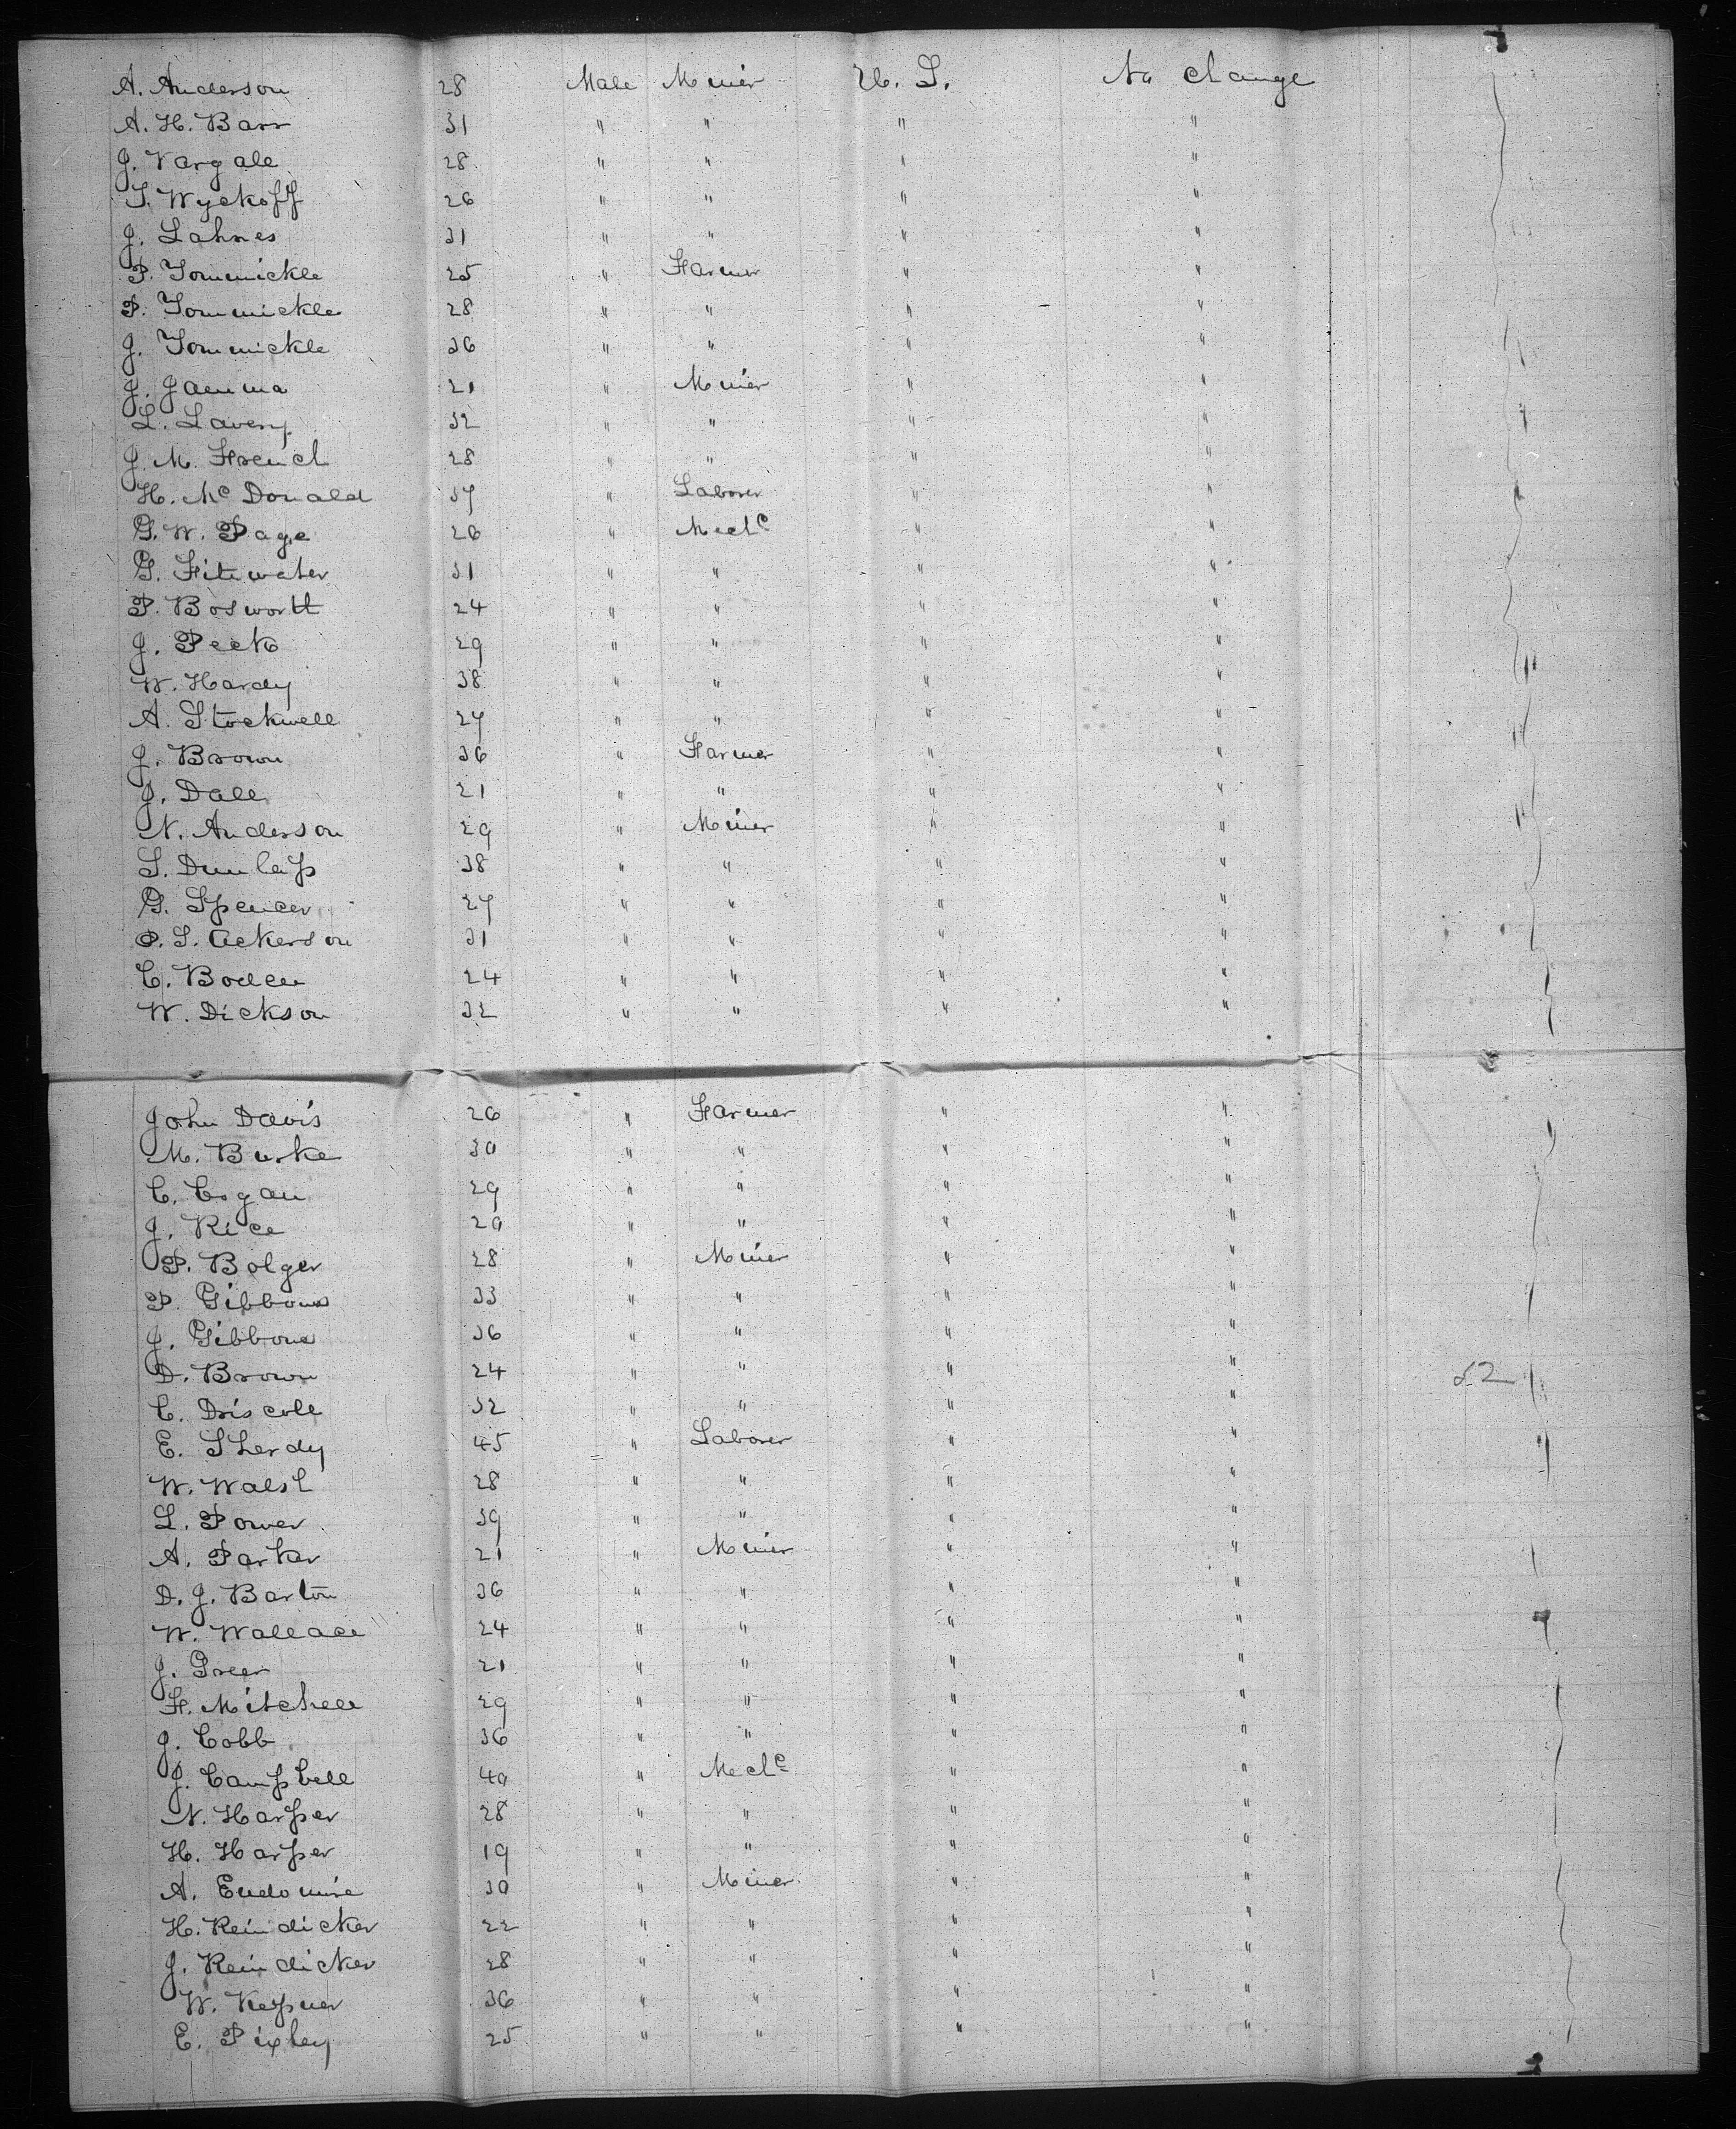 A. Anderson 28 Male Miner U. S. No change
A. H. Barr 31 " " " "
J. Vargale 28 " " " "
S. Wyckoff 26 " " " "
J. Lahnes 31 " " " "
P. Tommickle 25 " Farmer " "
P. Tommickle 28 " " " "
J. Tommickle 36 " " " "
J. Jamma 21 " Miner " "
L. Lavery 32 " " " "
J. M. French 28 " " " "
H. Mc Donald 37 " Laborer " "
G. W. Page 26 " Mechc " "
G. Fitewater 31 " " " "
P. Bosworth 24 " " " "
J. Peck 29 " " " "
W. Hardy 38 " " " "
A. Stockwell 27 " " " "
J. Brown 36 " Farmer " "
J. Dall 21 " " " "
N. Anderson 29 " Miner " "
S. Dunlap 38 " " " "
G. Spencer 27 " " " "
O. S. Ackerson 31 " " " "
C. Boden 24 " " " "
W. Dickson 32 " " " "
John Davis 26 " Farmer " "
M. Burke 30 " " " "
C. Cogan 29 " " " "
J. Rice 20 " " " "
P. Bolger 28 " Miner " "
P. Gibbons 33 " " " "
J. Gibbons 36 " " " "
D. Brown 24 " " " " 52
C. Driscoll 32 " " " "
E. Sherdy 45 " Laborer " "
W. Walsh 28 " " " "
L. Power 39 " " " "
A. Parker 21 " Miner " "
D. J. Barton 36 " " " "
W. Wallace 24 " " " "
J. Greer 21 " " " "
F. Mitchell 29 " " " "
J. Cobb 36 " " " "
J. Campbell 40 " Mechc " "
N. Harper 28 " " " "
H. Harper 19 " " " "
A. Endomire 30 " Miner " "
H. Reindicker 22 " " " "
J. Reindicker 28 " " " "
W. Kepner 36 " " " "
E. Pixley 25 " " " "